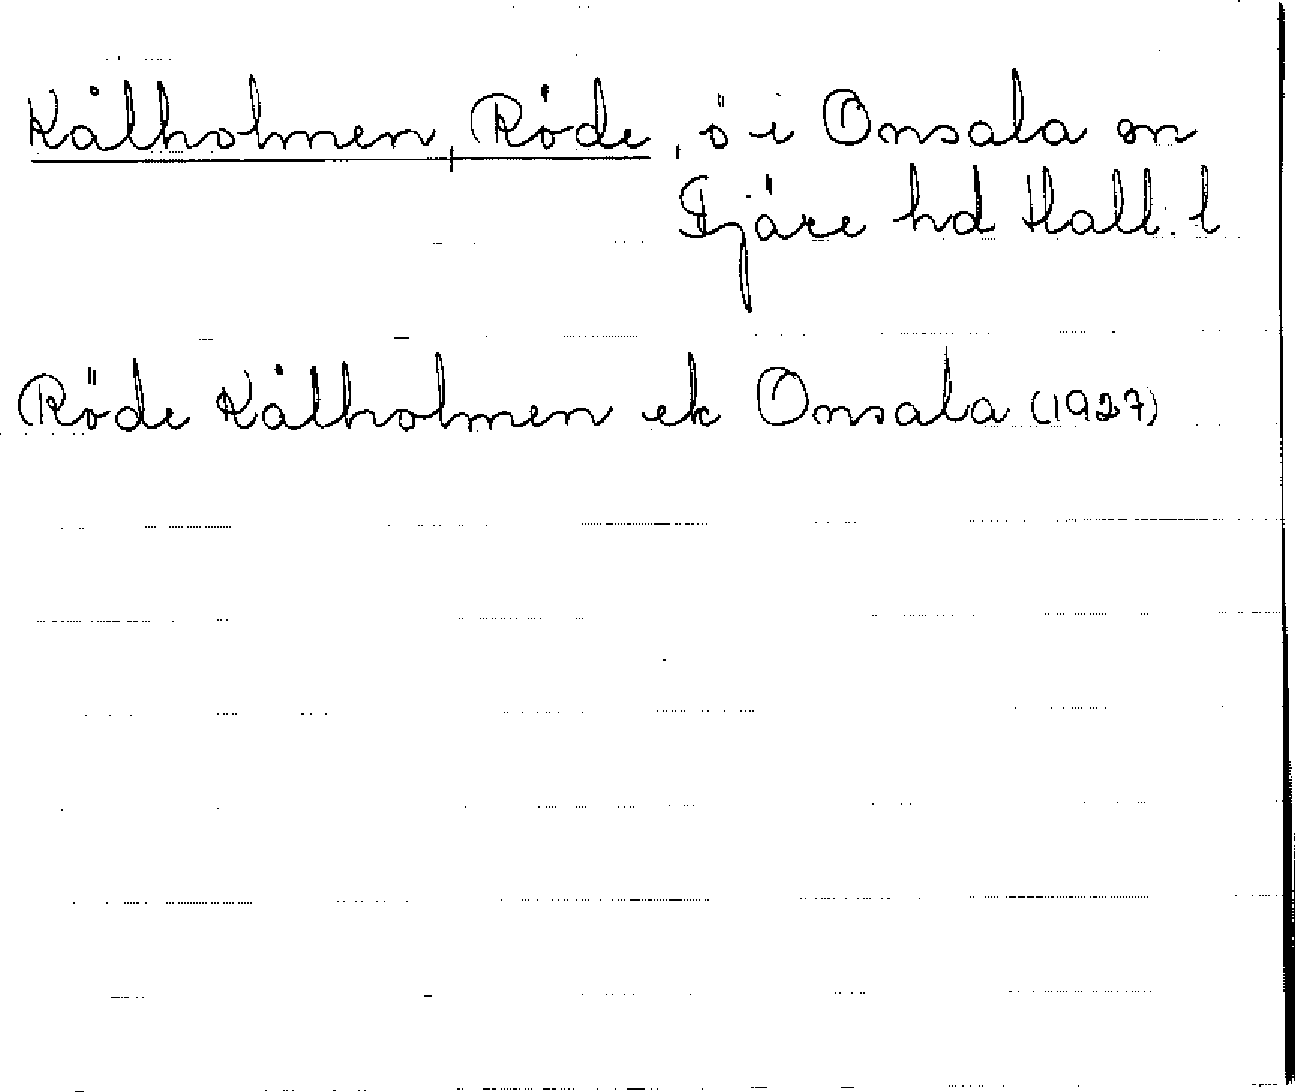 Kålholmen, Röde, ö i Onsala sn
Fjäre hd Hall. l
Röde Kålholmen ek Onsala (1927)